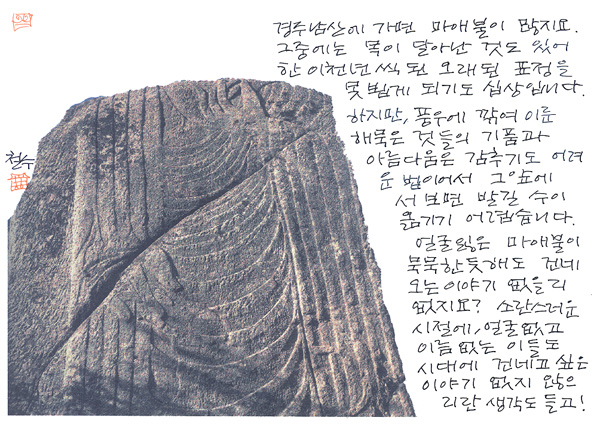 경주남산에 가면 마애불이 많지요.
그중에는 목이 달아난 것도 있어
한 이천년씩 된 오래된 표정을
못 뵙게 되기도 십상입니다.
하지만, 풍우에 깎여 이룬
해묵은 것들의 기품과
아름다움은 감추기도 어려
운 법이어서 그앞에
서 보면 발길 수이
옮기기 어렵습니다.
얼굴잃은 마애불이
묵묵한듯해도 건네
오는이야기 없을리
없지요? 소란스러운
시절에, 얼굴없고
이름 없는 이들도
시대에 건네고 싶은
이야기 없지 않으
리란 생각도 들고!
철수